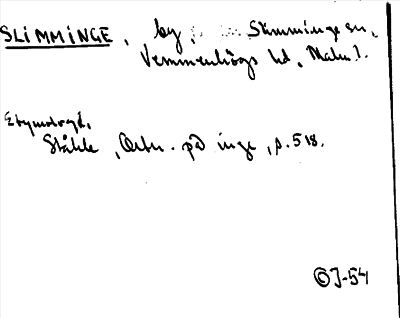 SLIMMINGE, by, Slimminge sn,
Vemmenhögs hd, Malm. l.
Etymologi.
Ståhle, Ortn. på inge, s. 518.
©J-54